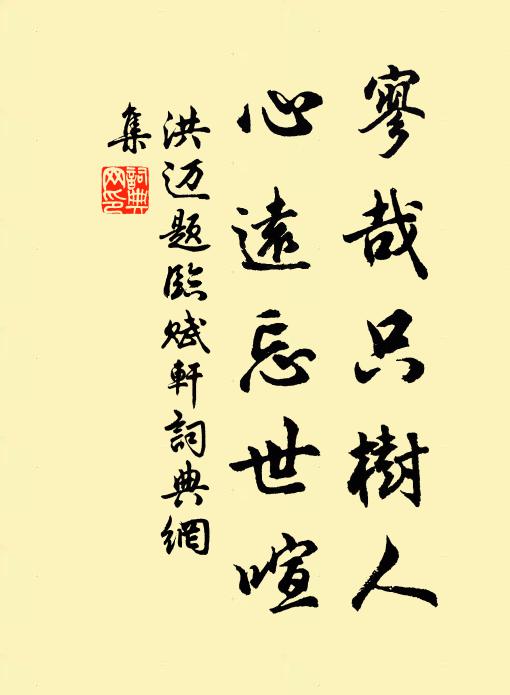 寥哉只樹人
心遠忘世喧
洪迈题臨赋軒詞典網
集
詞典网印